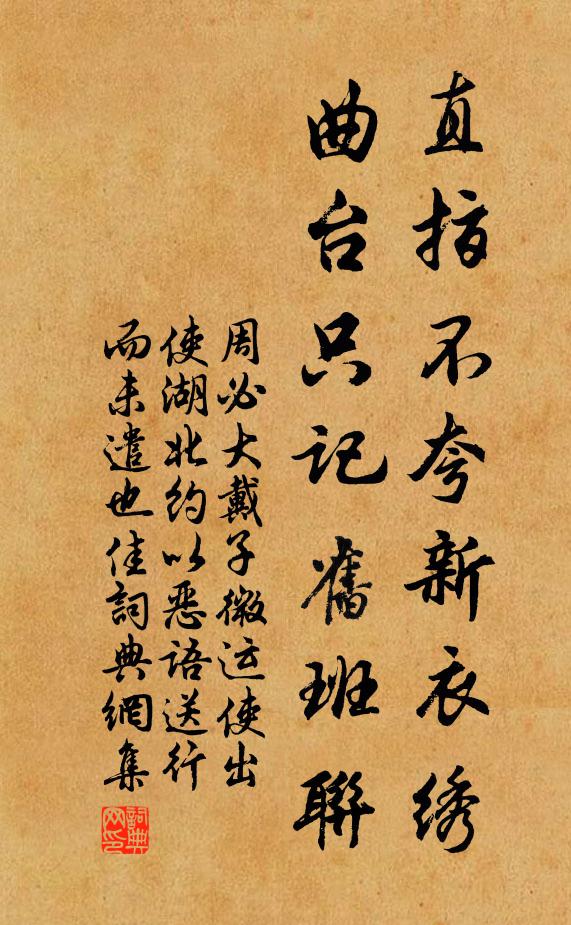 直指不夸新衣绣
曲台只记舊班聯
周必大戴子微运使出
使湖北约以恶语送行
而未遣也佳詞典網集
詞典网印